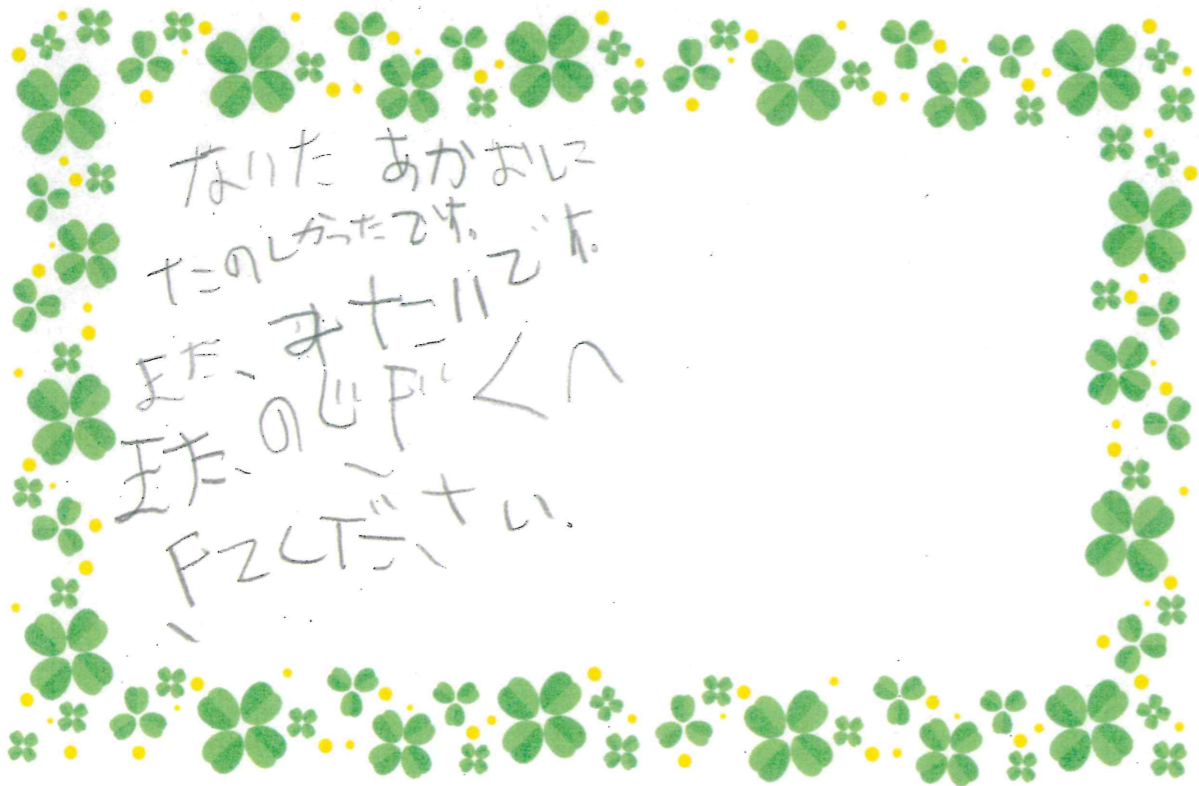 ないた あかおに
たのしかったです。
また、みたいです。
また、のじぎくへ
きてください。